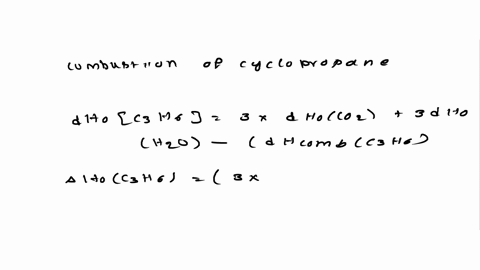 combustion of cyclopropane
dHo [C3H6] = 3x dHo(CO2) + 3dHo
(H2O) — (dHcomb(C3H6)
ΔHo(C3H6) = ( 3x